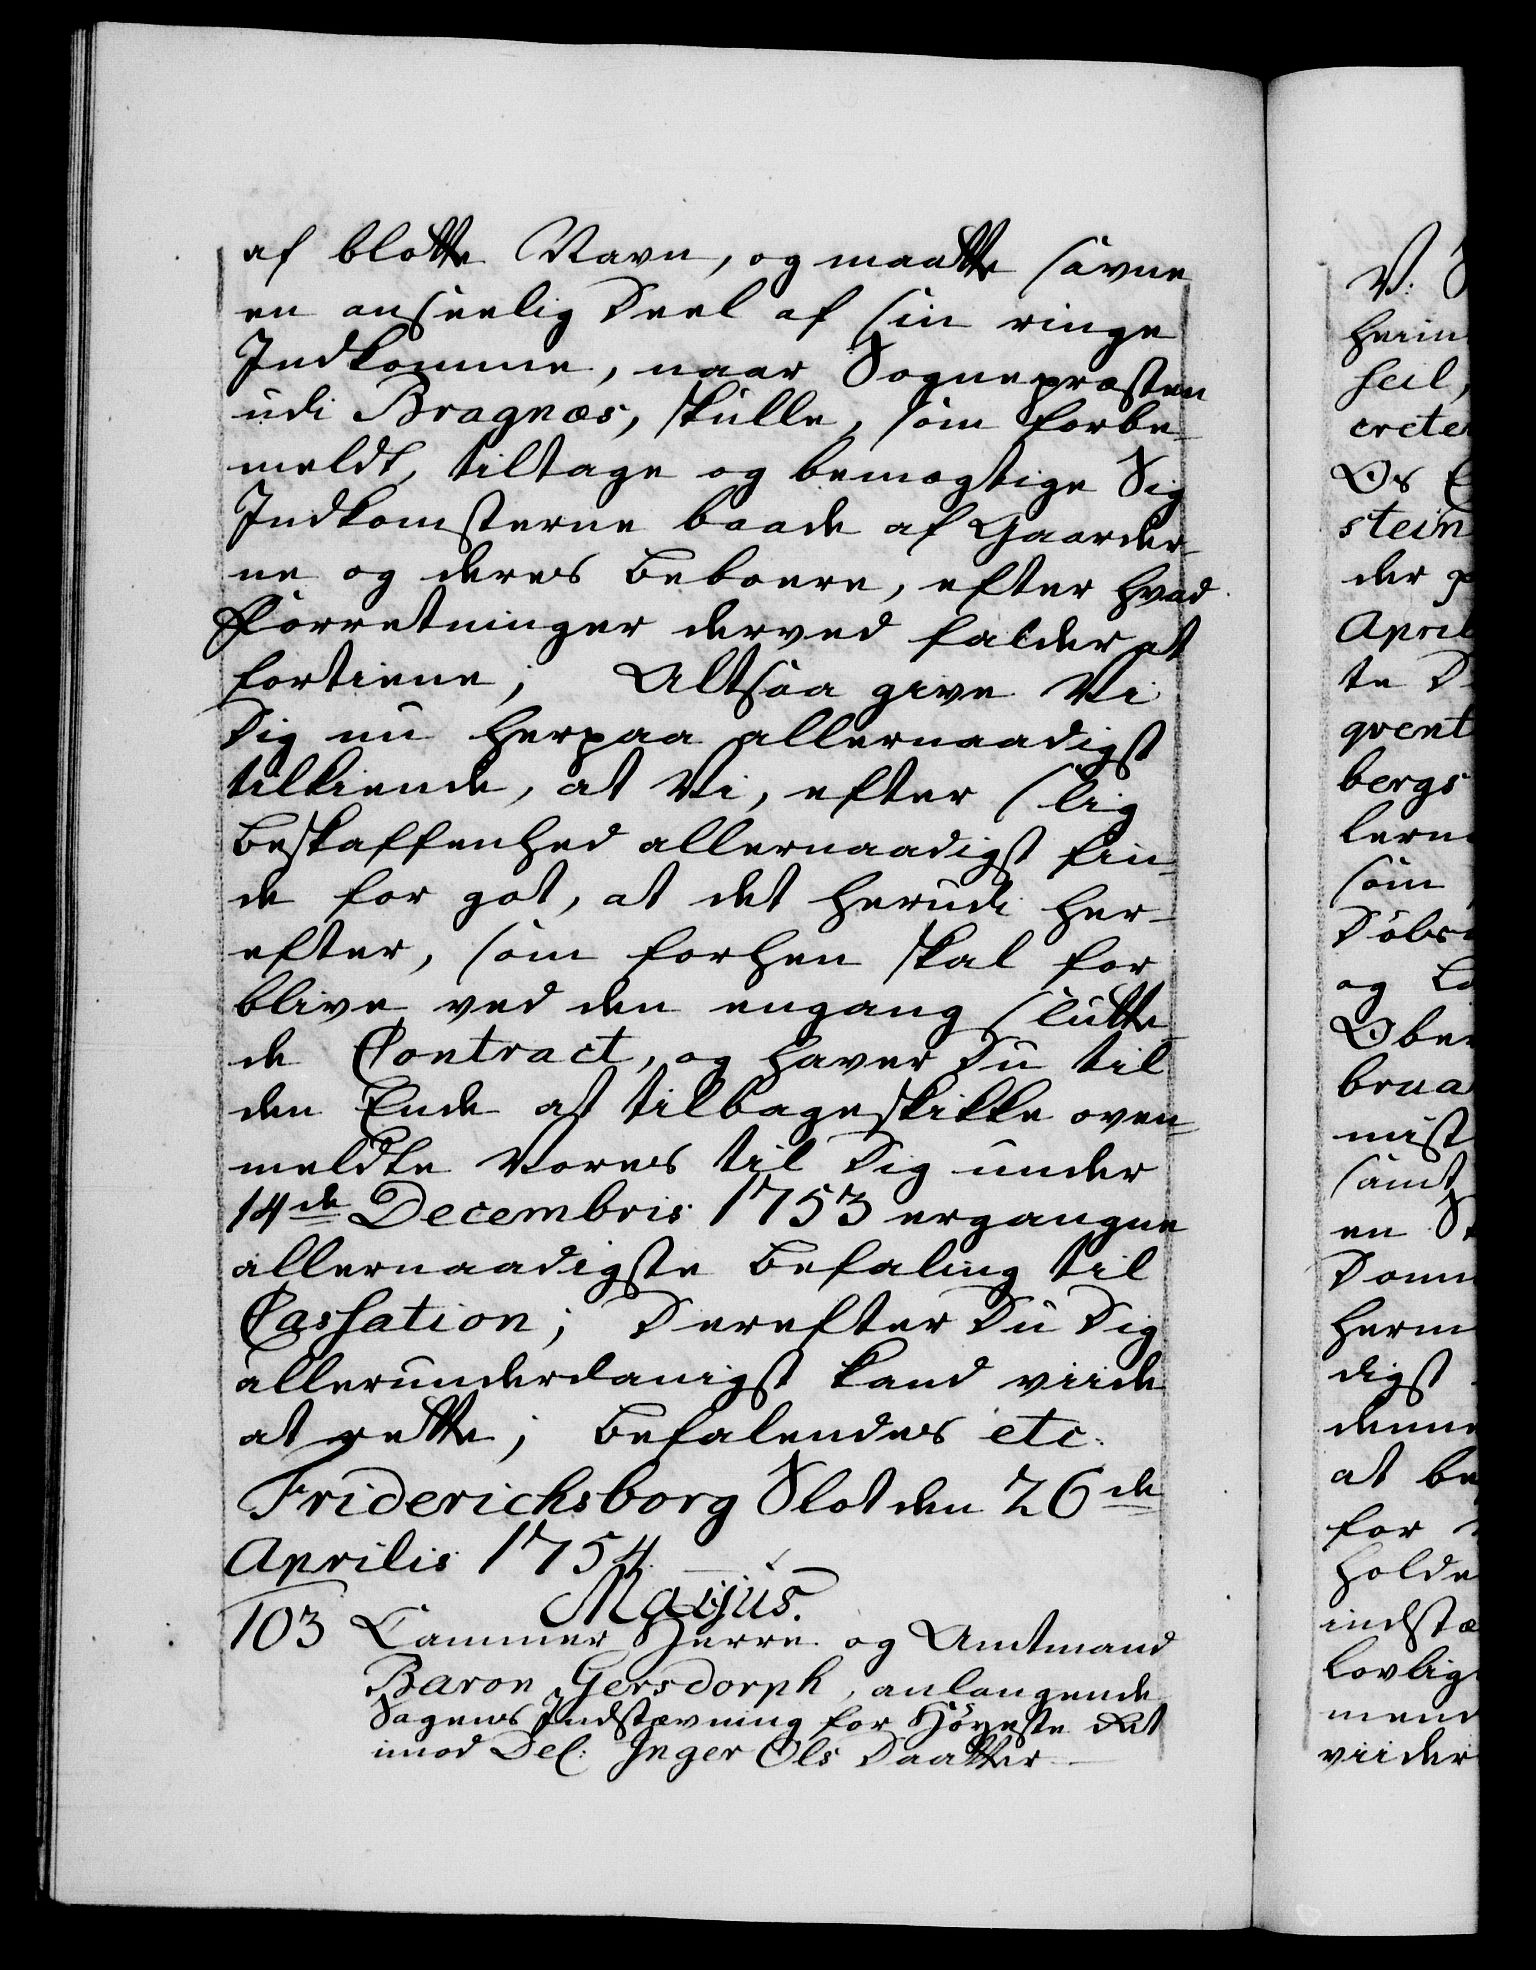 af blotte Navn, og maatte savne
en anseelig Deel af sin ringe
Indkomme, naar Sognepræsten
udi Bragnæs, skulle, som forbe-
meldt, tiltage og bemægtige Sig
Indkomsterne baade af Gaarder-
ne og deres Beboere, efter hvad
Forretninger derved falder at
fortiene; Altsaa give Vi
Dig nu herpaa allernaadigst
tilkiende, at Vi, efter slig
Beskaffenhed allernaadigst fin-
de for got, at det herudi her-
efter, som forhen skal for
blive ved den engang slutte-
de Contract, og haver Du til
den Ende at tilbageskikke oven-
meldte Vores til Dig under
14de Decembris 1753 ergangne
allernaadigste Befaling til
Cassation; Derefter Du Dig
allerunderdanigst kand viide
at rette; Befalendes etc.
Friderichsborg Slot den 26de
Aprilis 1754
Maijus.
103 Cammer Herre og Amtmand
Baron Gersdorph, anlangende
Sagens Indstævning for Höyeste Ret
imod Del: Inger Ols Daatter
V:
herin
seil,
crete
Os
stein
der p
April
te D
qvent
bergs
lern
som
Döbe
og La
Ober
braa
mist
samt
en St
Domm
herm
digst
denne
at be
for
holde
indstæ
lovlig
mend
viider